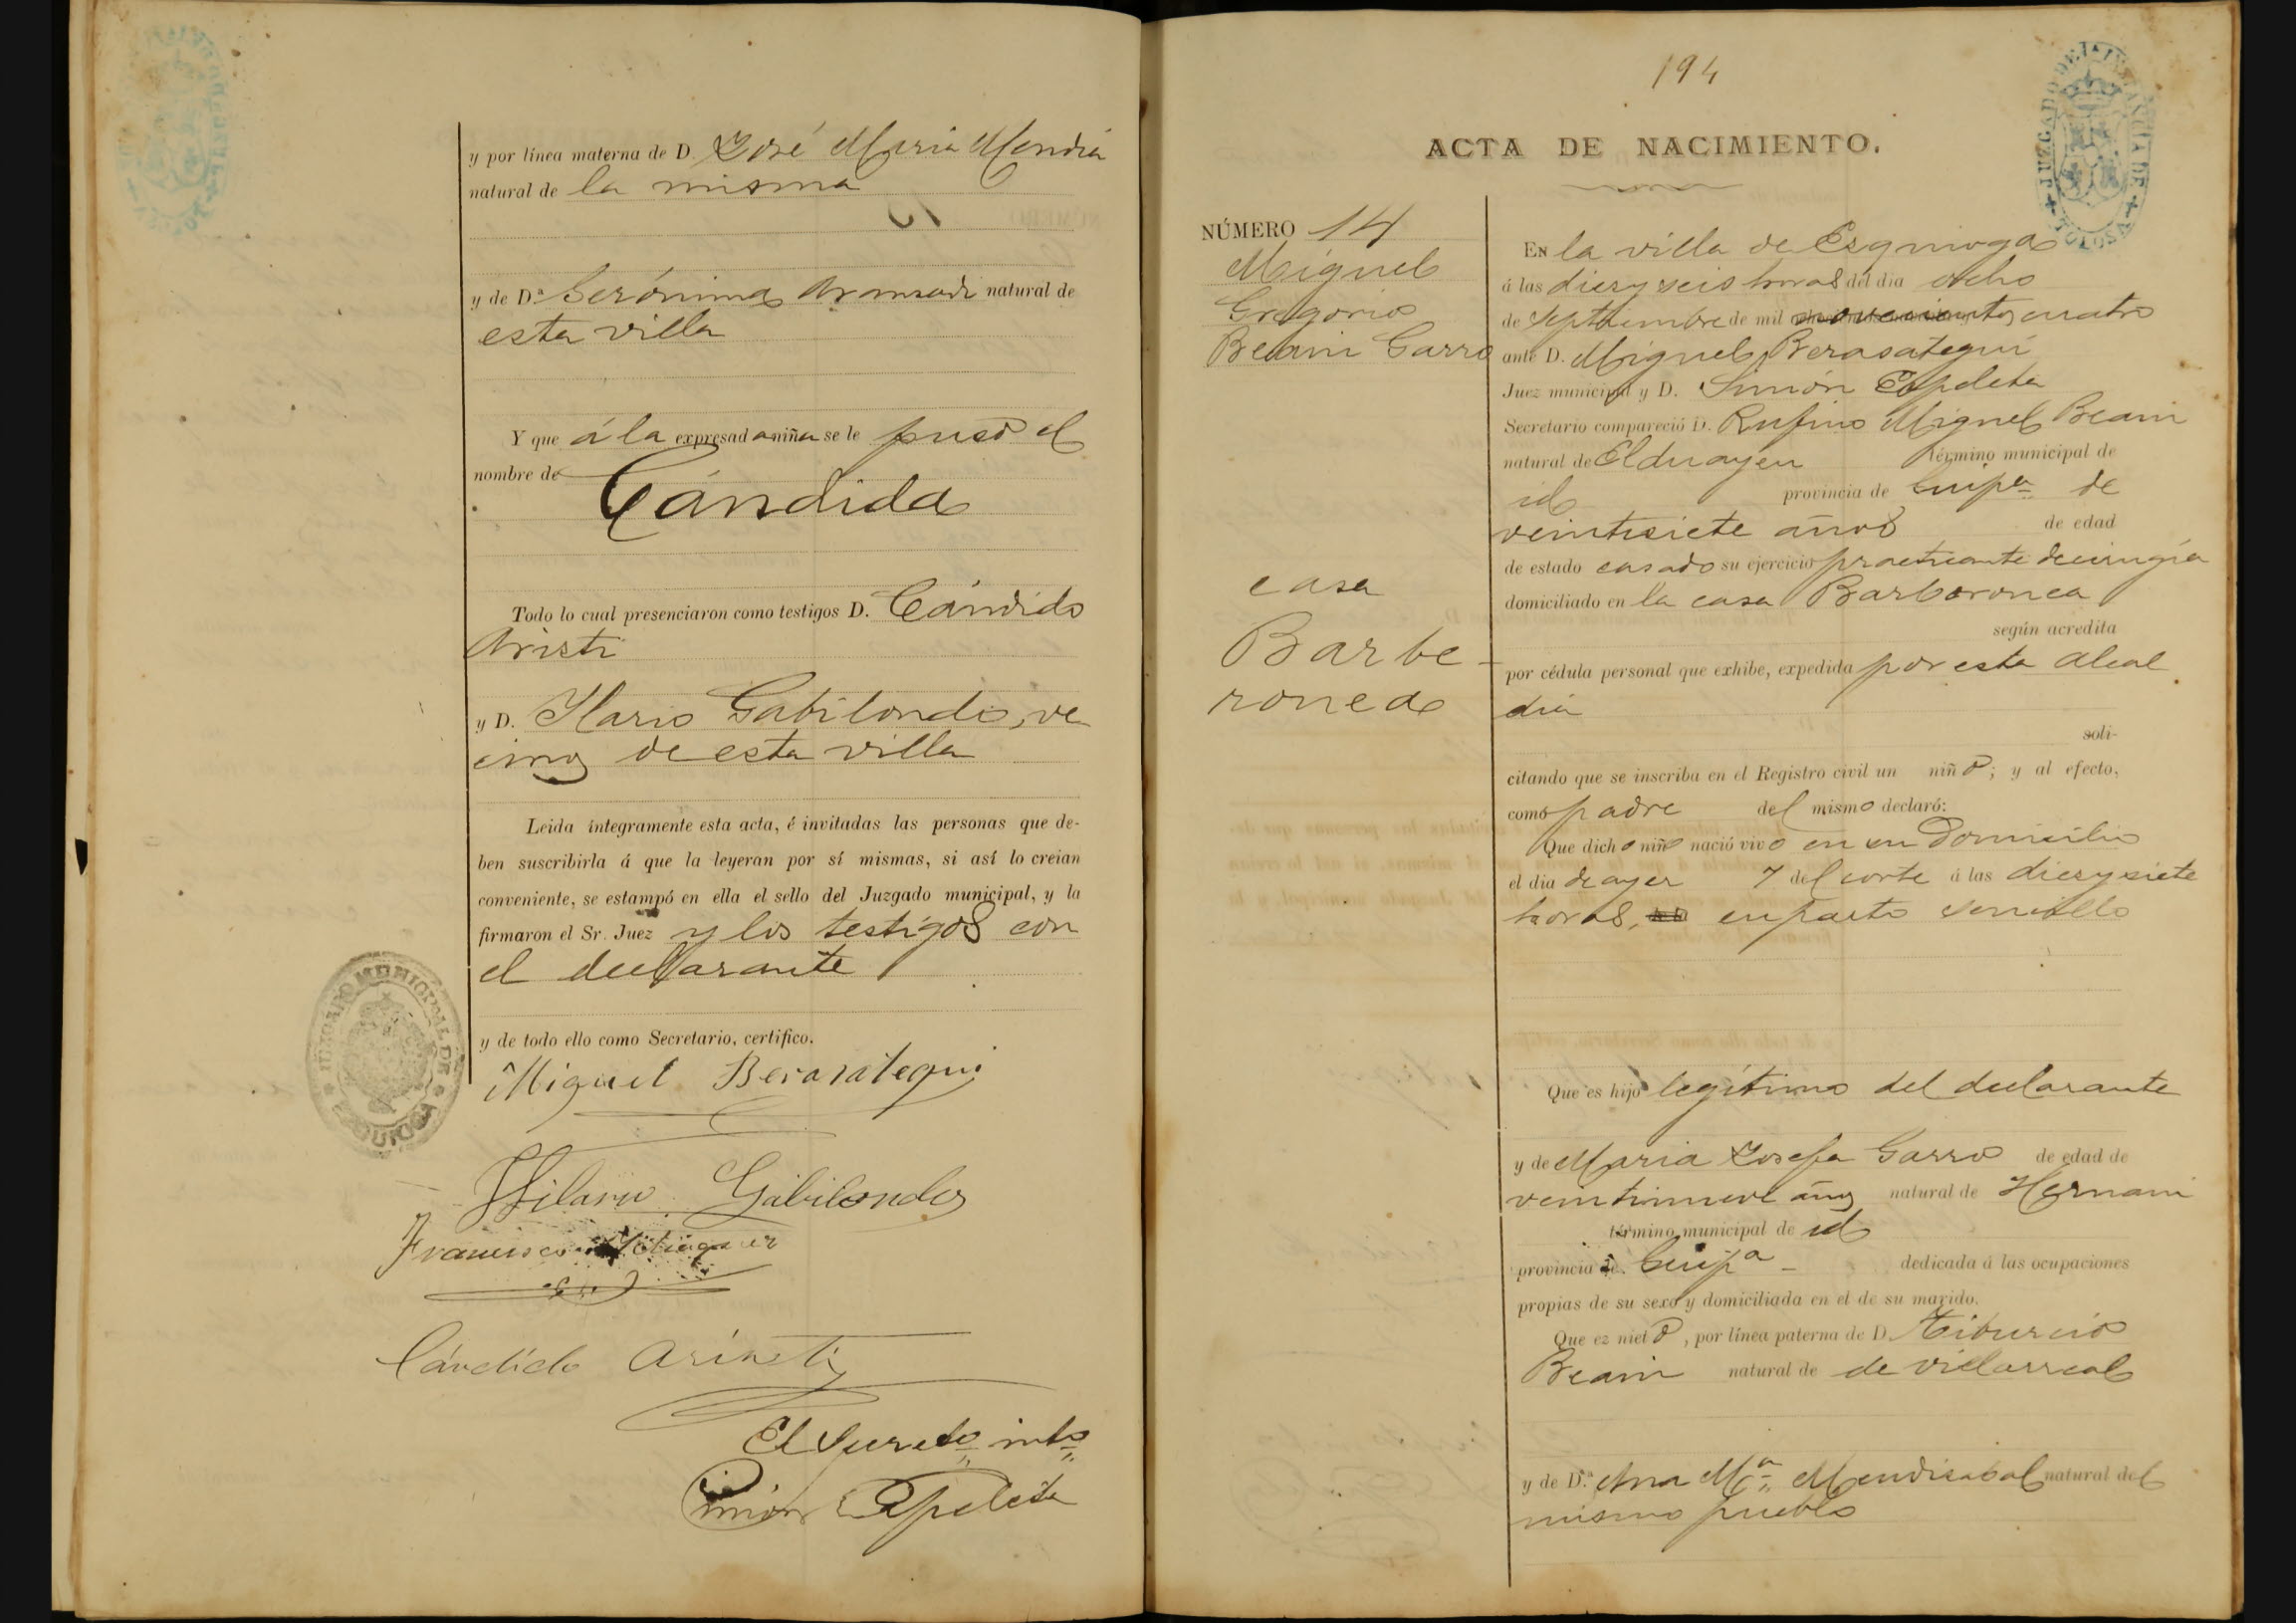 y por línea materna de D. José María Mendía
natural de la misma
y de D.ª Gerónima Aramendi natural de
esta villa
Y que á la expresada niña se le puso el
nombre de
Cándida
Todo lo cual presenciaron como testigos D. Cándido
Aristi
y D. Ilario Gabilondo, ve
cinos de esta villa
Leida íntegramente esta acta, é invitadas las personas que de-
ben suscribirla á que la leyeran por sí mismas, si así lo creian
conveniente, se estampó en ella el sello del Juzgado municipal, y la
firmaron el Sr. Juez y los testigos con
el declarante
y de todo ello como Secretario, certifico.
JUZGADO MUNICIPAL DE EZQUIOGA
Miguel Berasategui
Hilario Gabilondo
Francisco
Cándido Aristi
El Secreto into
Simón Ezpeleta
194
JUZGADO DE 1ª INSTANCIA DE TOLOSA
ACTA DE NACIMIENTO.
NÚMERO 14
Miguel
Gregorio
Beain Garro
casa
Barbe-
ronea
En la villa de Ezquioga
á las diezyseis horas del dia ocho
de Septbiembre de mil novecientos cuatro
ante D. Miguel Berasategui
Juez municipal y D. Simón Ezpeleta
Secretario compareció D. Rufino Miguel Beain
natural de Elduayen término municipal de
id provincia de Guipª de
veintisiete años de edad
de estado casado su ejercicio practicante de cirugía
domiciliado en la casa Barberonea
según acredita
por cédula personal que exhibe, expedida por esta Alcal
dia
soli-
citando que se inscriba en el Registro civil un niño; y al efecto,
como padre del mismo declaró:
Que dicho niño nació vivo en su Domicilio
el dia de ayer 7 del corte á las diezysiete
horas, en parto sencillo
Que es hijo legítimo del declarante
y de Maria Josefa Garro de edad de
veintinueve años natural de Hernani
término municipal de id
provincia de Guipª dedicada á las ocupaciones
propias de su sexo y domiciliada en el de su marido.
Que ez nieto, por línea paterna de D. Tiburcio
Beain natural de de Villarreal
y de D.ª Ana Mª Mendizabal natural del
mismo pueblo